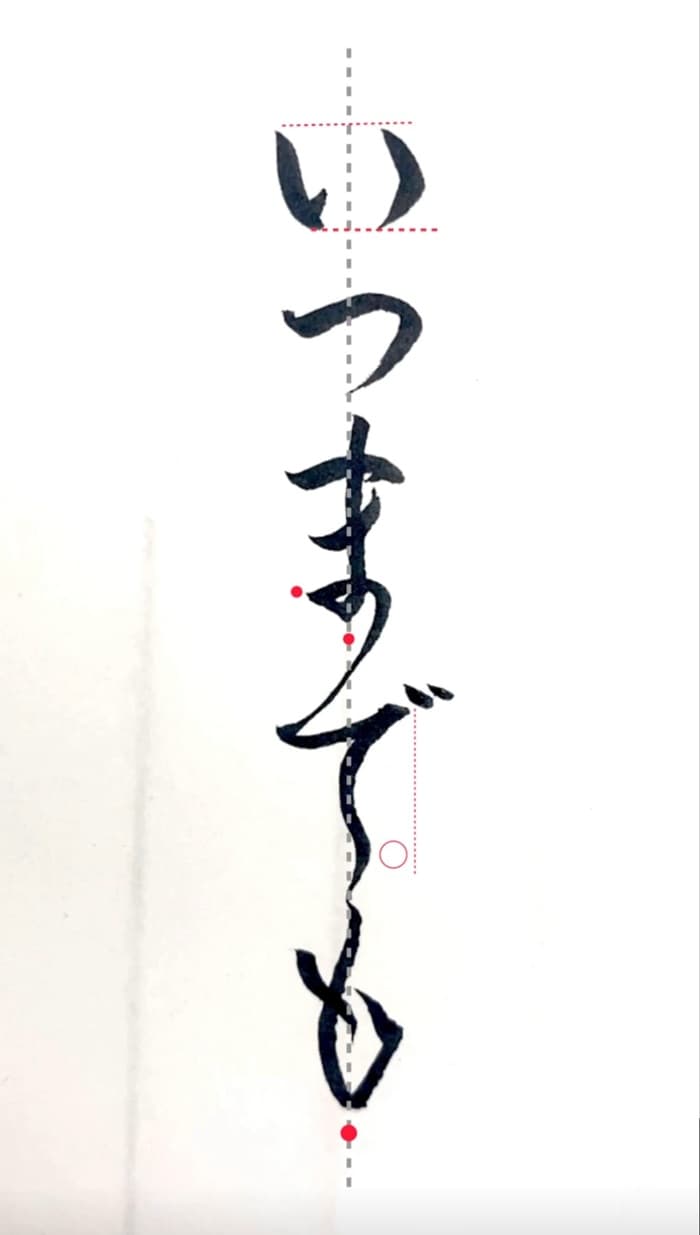 いつまでも